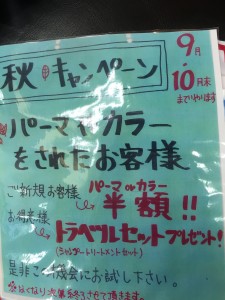 秋 キャンペーン
9月
10月末
までいやります
パーマ or カラー
をされたお客様
ご新規お客様
パーマ or カラー
半額!!
お得意様
トラベルセットプレゼント!
(シャンプー・トリートメントセット)
是非この機会にお試し下さい。
なくなり次第終了させて頂きます。